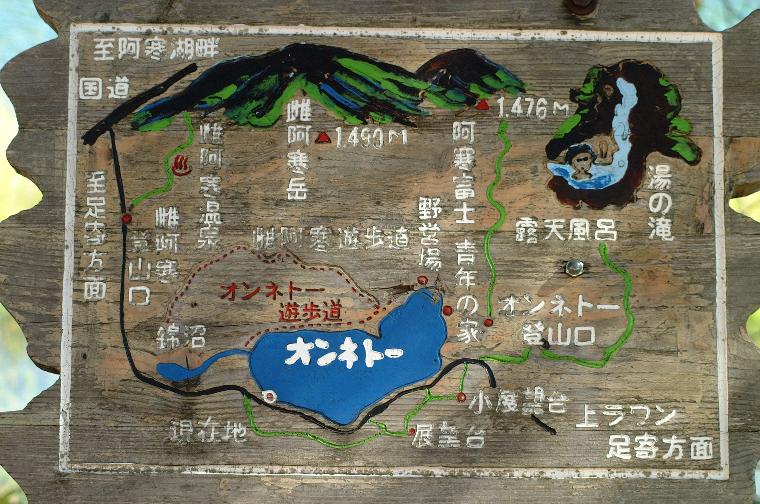 至阿寒湖畔
国道
雌阿寒岳
1.499M
1.476M
阿寒富士
雌阿寒温泉
至足寄方面
雌阿寒
登山口
雌阿寒遊歩道
野営場
青年の家
湯の滝
露天風呂
オンネトー
遊歩道
オンネトー
登山口
錦沼
オンネトー
現在地
展望台
小展望台
上ラワン
足寄方面